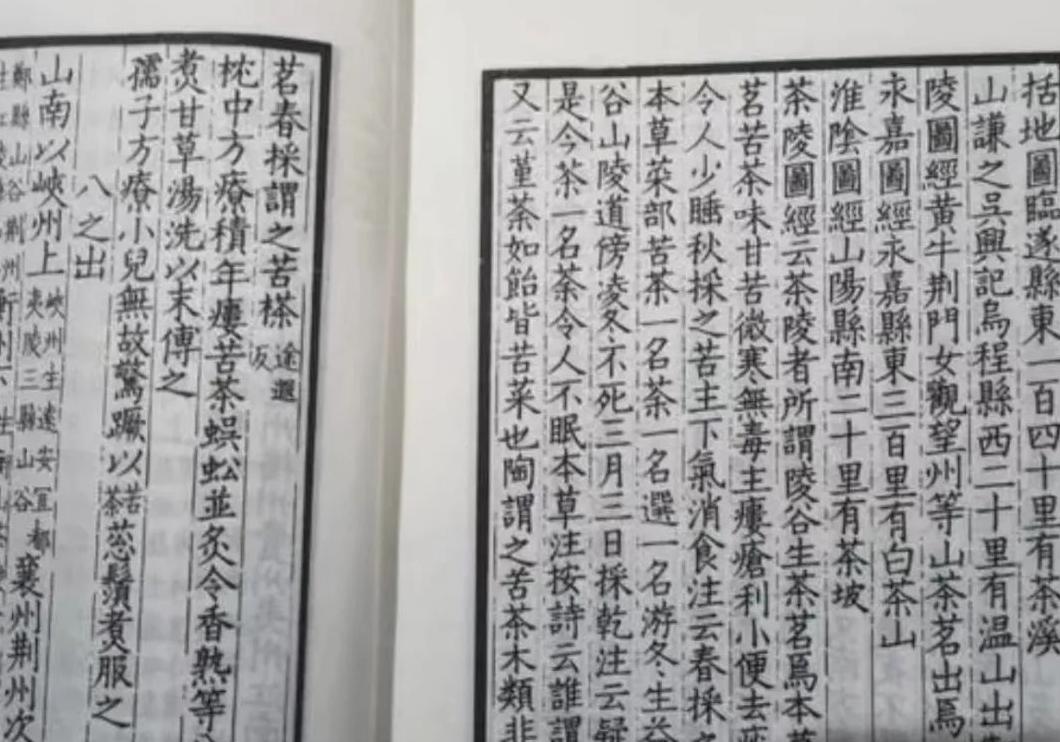 括地圖臨遂縣東一百四十里有茶溪
山謙之吴興記烏程縣西二十里有温山出
陵圖經黃牛荆門女觀望州等山茶茗出焉
永嘉圖經永嘉縣東三百里有白茶山
淮陰圖經山陽縣南二十里有茶坡
茶陵圖經云茶陵者所謂陵谷生茶茗焉本
茗苦茶味甘苦微寒無毒主瘻瘡利小便去
令人少睡秋採之苦主下氣消食注云春採
本草菜部苦茶一名荼一名選一名游冬生
谷山陵道傍凌冬不死三月三日採乾注云疑
是今茶一名荼令人不眠本草注按詩云誰謂
又云堇荼如飴皆苦菜也陶謂之苦茶木類非
茗春採謂之苦𣘻途遐反
枕中方療積年瘻苦茶蜈蚣並炙令香熟等
煑甘草湯洗以末傅之
孺子方療小兒無故驚蹶以苦茶葱鬚煑服之
八之出
山南以峽州上峽州生遠安宜都夷陵三縣山谷襄州荆州次
縣山谷荆州